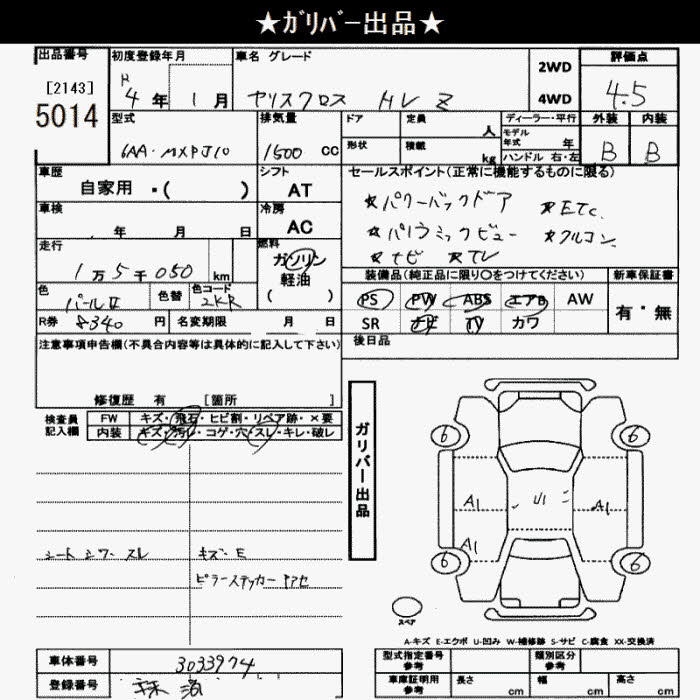 ★ガリバー出品★
出品番号 初度登録年月 車名 グレード 2WD 評価点
[2143] R 4年 1月 ヤリスクロス HV Z 4WD 4.5
5014
型式 排気量 ドア 定員 人 ディーラー・平行 外装 内装
6AA-MXPJ10 1500 cc 形状 積載 kg モデル年式 年 B B
ハンドル 右・左
車歴 シフト セールスポイント(正常に機能するものに限る)
自家用・( ) AT ☆パワーバックドア ☆ETC
車検 年 月 日 冷房 AC ☆パノラミックビュー ☆クルコン
走行 燃料 ☆ナビ ☆TV
1万5千050km ガソリン 装備品(純正品に限り○をつけてください) 新車保証書
軽油
( )
色 パールⅡ 色替 色コード 2KR PS PW ABS エアB AW 有・無
R券 8340円 名変期限 月 日 SR ナビ TV カワ
注意事項申告欄(不具合内容等は具体的に記入して下さい) 後日品
修復歴 有 [箇所 ]
検査員記入欄 FW キズ・飛石・ヒビ割・リペア跡・×要
内装 キズ・汚レ・コゲ・穴・スレ・キレ・破レ
ガリバー出品
6 6
A1 U1 A1
A1
シート シワ スレ キズ・E
ピラーステッカー ヤケ
6 6
スペア
A-キズ E-エクボ U-凹み W-補修跡 S-サビ C-腐食 XX-交換済
車体番号 3033974 型式指定番号 参考 類別区分 参考
登録番号 抹消 車庫証明用 参考 長さ cm 幅 cm 高さ cm